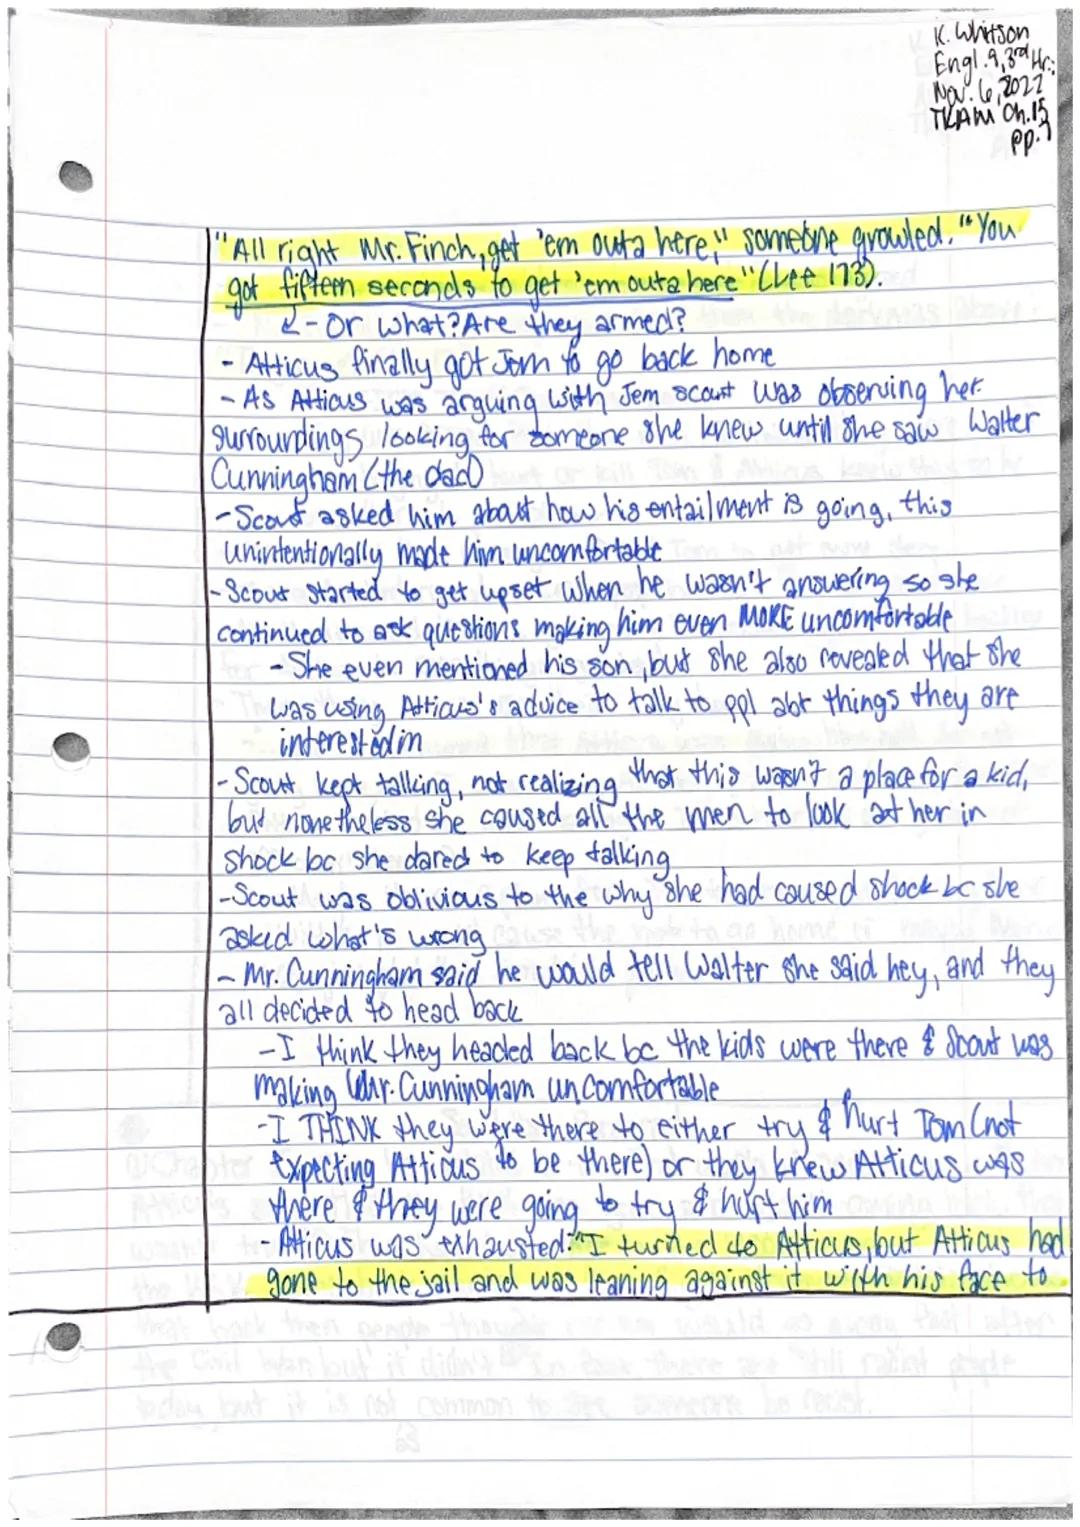 K. Whitson
Engl. 9, 3rd Hr.:
Nov. 6, 2022
TKAM Ch.15
pp.7
"All right Mr. Finch, get 'em outa here," someone growled. "You
got fifteen seconds to get 'em outa here" (Lee 173).
- Or what? Are they armed?
- Atticus finally got Jem to go back home
- As Atticus was arguing with Jem scout was observing her
surroundings looking for someone she knew until she saw Walter
Cunningham (the dad)
- Scout asked him about how his entailment is going, this
unintentionally made him uncomfortable
- Scout started to get upset when he wasn't answering so she
continued to ask questions making him even MORE uncomfortable
- She even mentioned his son, but she also revealed that she
was using Atticus's advice to talk to ppl abt things they are
interested in
- Scout kept talking, not realizing that this wasn't a place for a kid,
but nonetheless she caused all the men to look at her in
shock bc she dared to keep talking
- Scout was oblivious to the why she had caused shock bc she
asked what's wrong
- Mr. Cunningham said he would tell Walter she said hey, and they
all decided to head back
- I think they headed back bc the kids were there & Scout was
making Mr. Cunningham uncomfortable
- I THINK they were there to either try & hurt Tom (not
expecting Atticus to be there) or they knew Atticus was
there & they were going to try & hurt him
- Atticus was exhausted: "I turned to Atticus, but Atticus had
gone to the jail and was leaning against it with his face to